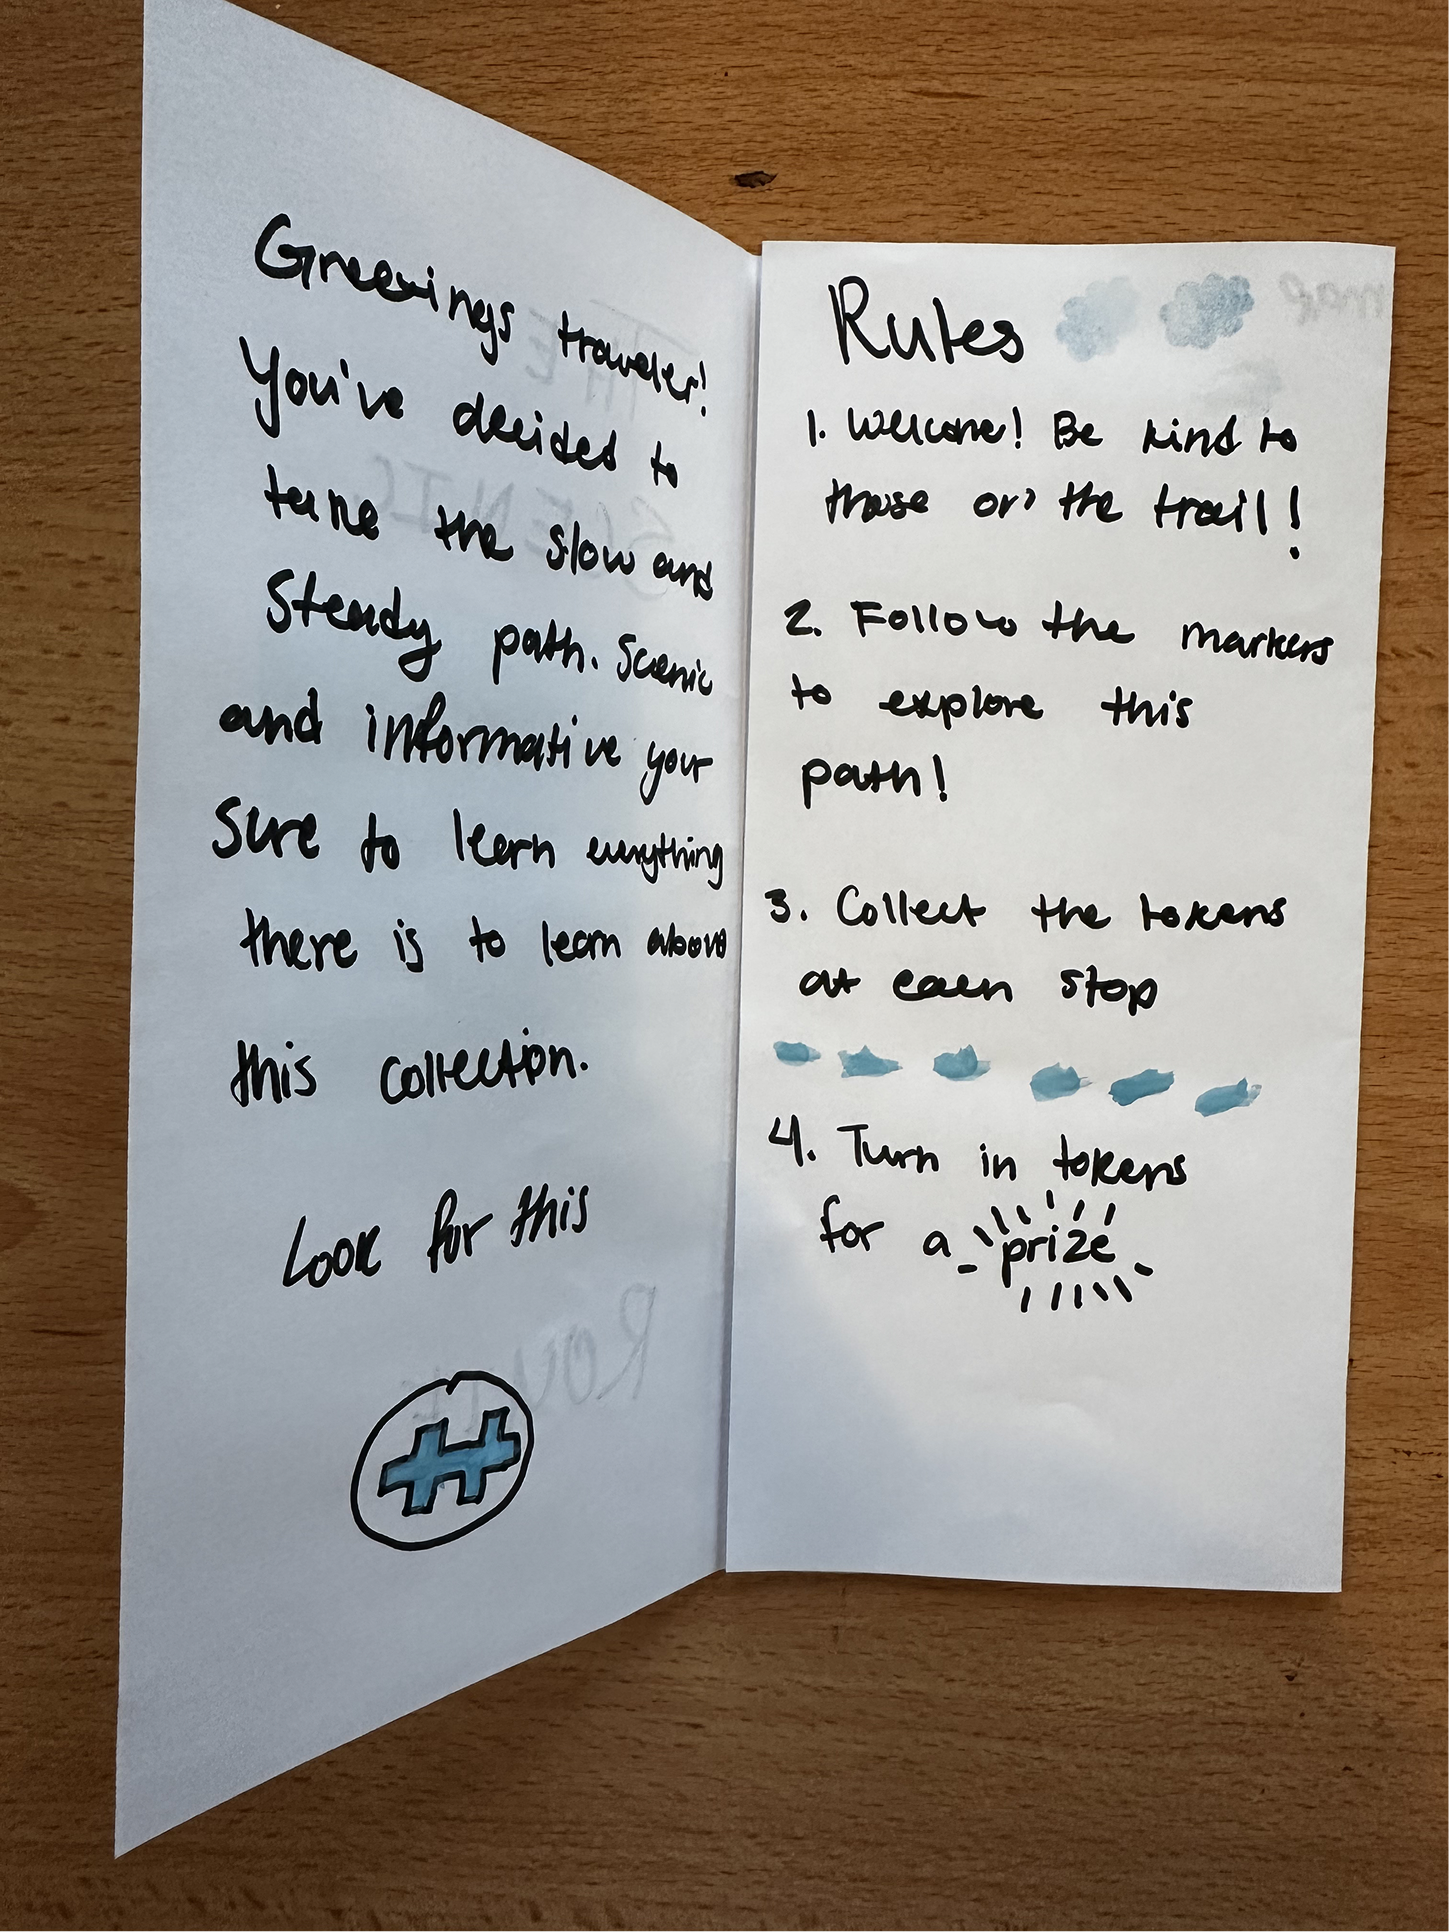 Greetings traveler!
You've decided to
take the slow and
Steady path. Scenic
and informative your
Sure to learn everything
there is to learn about
this collection.
Look for this
Rules
1. Welcome! Be kind to
those on the trail!
2. Follow the markers
to explore this
path!
3. Collect the tokens
at each stop
4. Turn in tokens
for a prize
THE
SCENIC
ROUTE
map